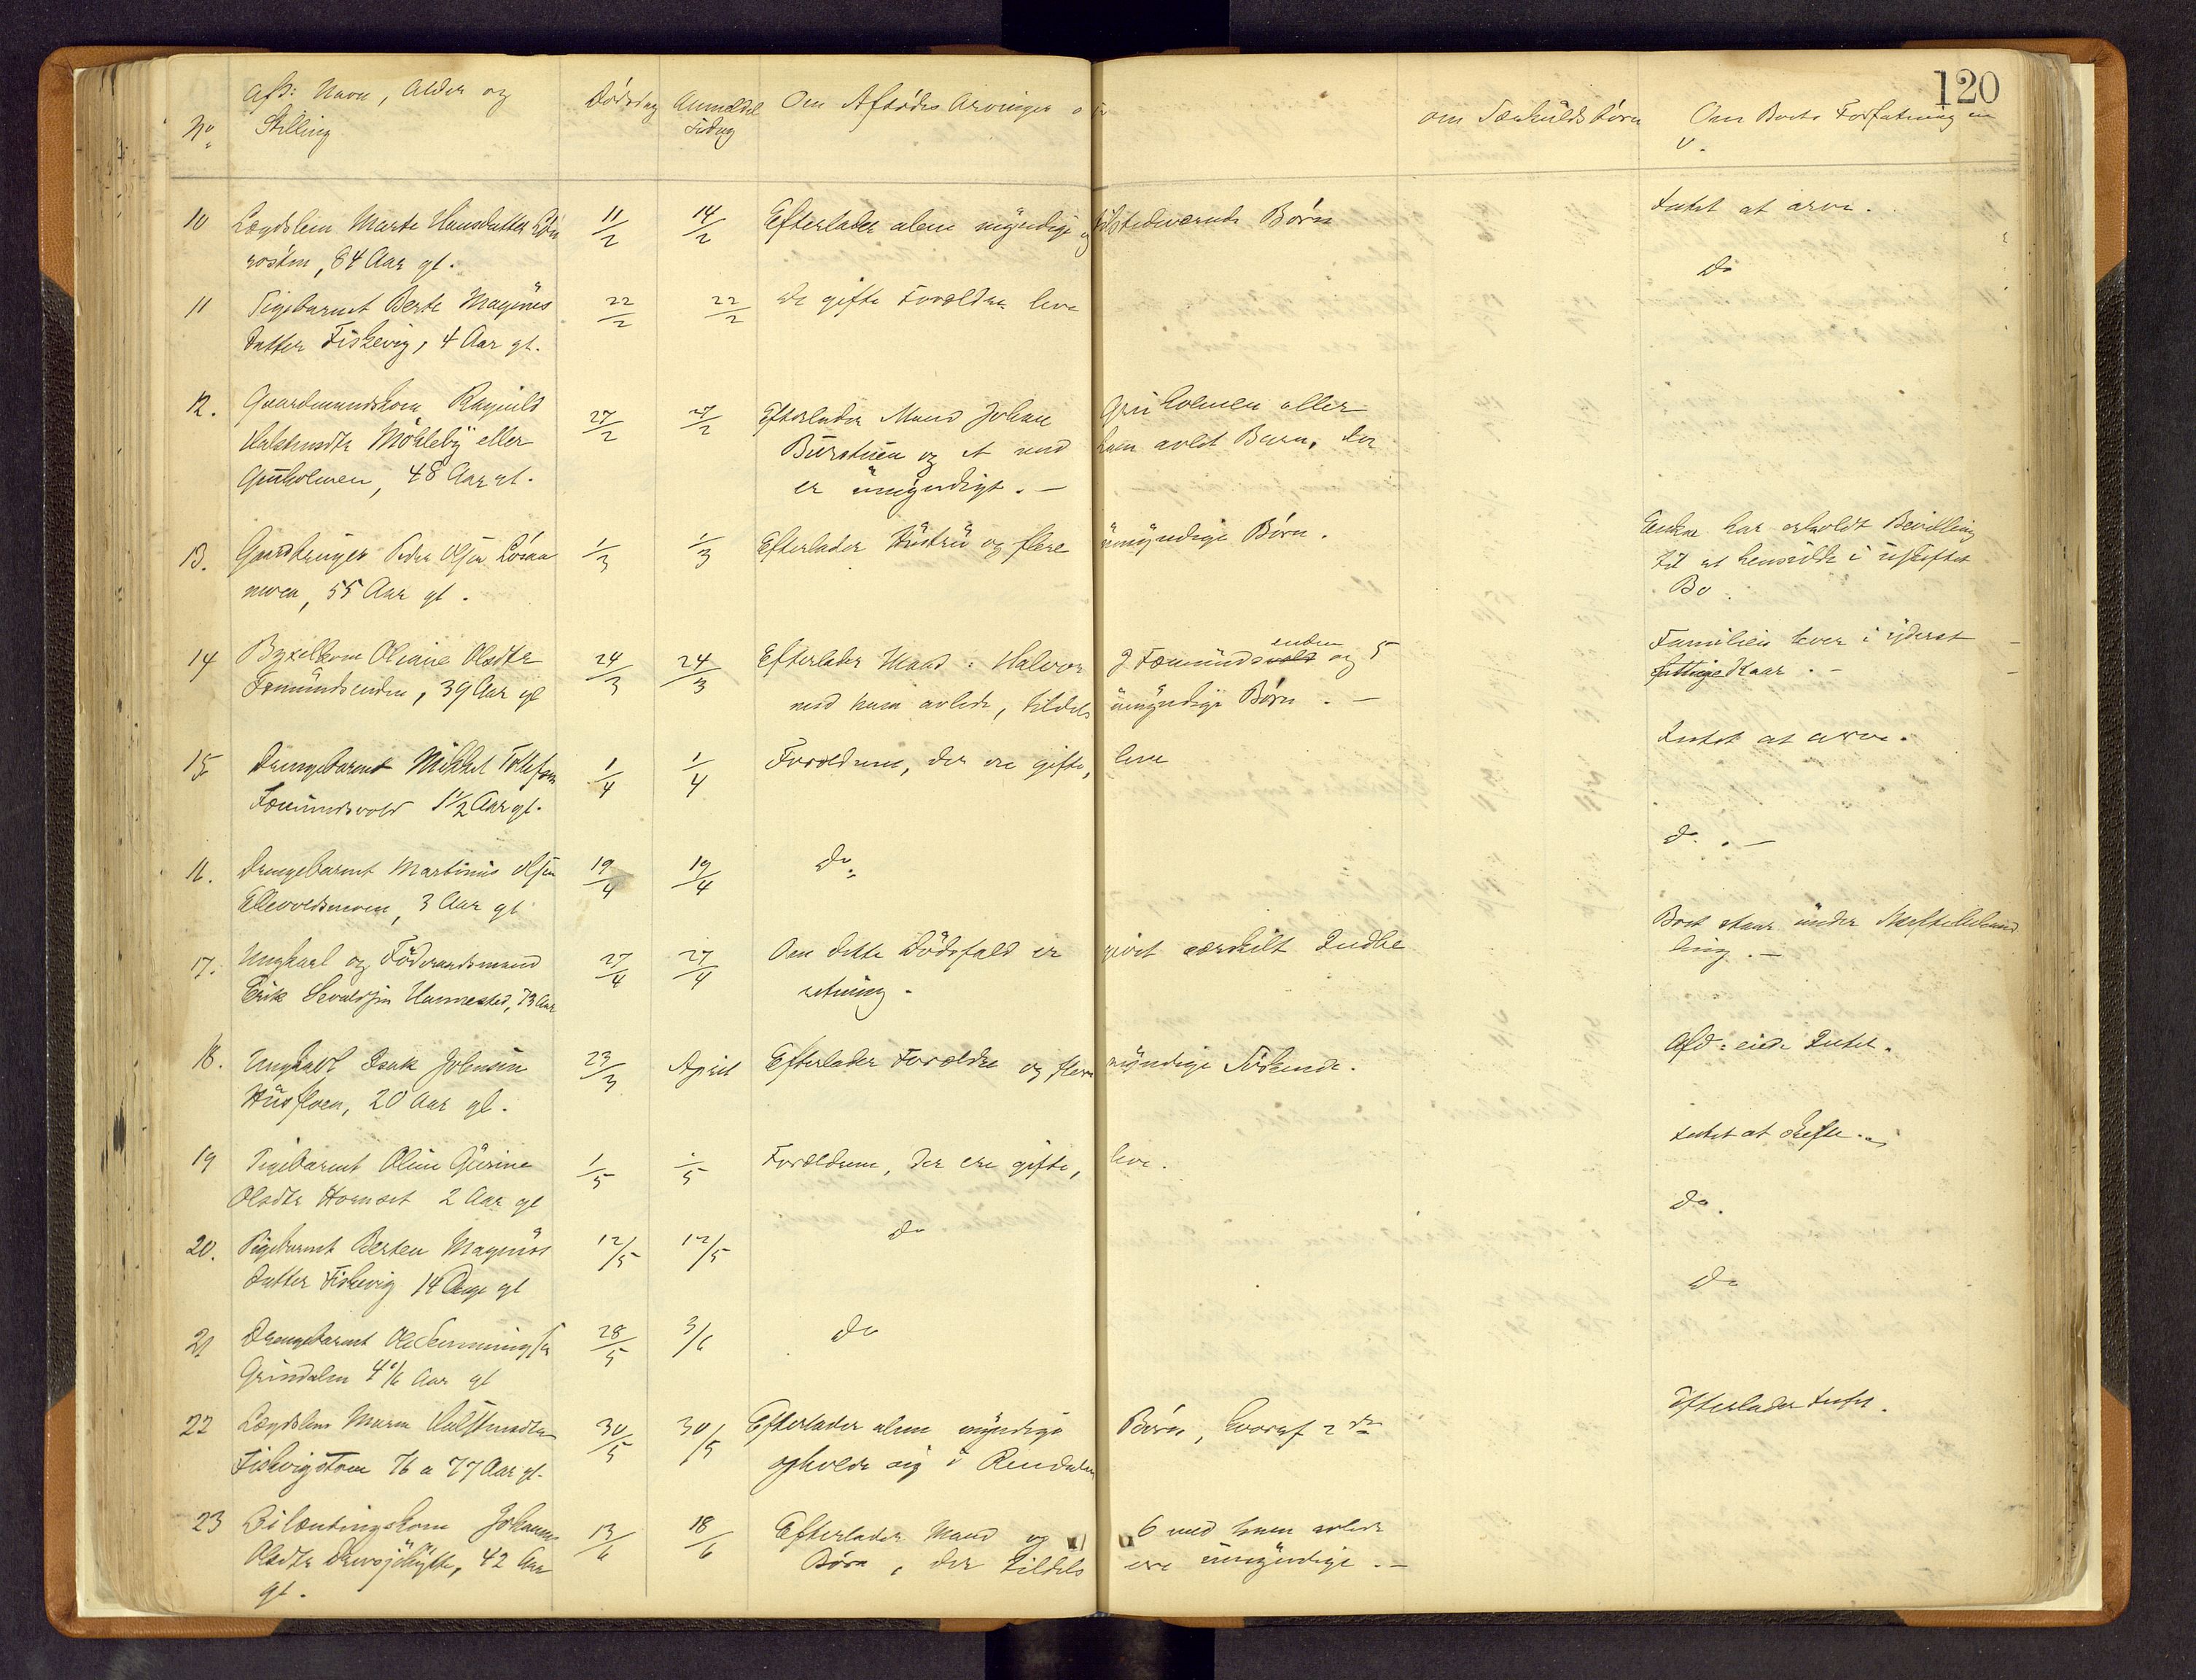 120
No Afd: Navn, Alder og Stilling
Dødsdag
Anmeldelsesdag
Om Afdødes Arvinger
om Særkuldsbørn
Om Boets Forfatning m
v.
10 Lægdslem Marte Hansdatter 11/2 14/2 Efterlader alene myndige og tilstedeværende Børn Intet at arve.
84 Aar gl.
11 Pigebarnet Berte Magnus 22/2 22/2 De gifte Forældre leve Do
datter Fiskevig, 4 Aar gl.
12. Gaardmandskone Ragnild 27/2 27/2 Efterlader Mand Johan Gruholmen eller
Halstensdtr Möhleby eller Burstuen og et med ham avlet Barn, der
Gruholmen, 48 Aar gl. er umyndigt. —
13. Gaardbruger Peder Olsen 1/3 1/3 Efterlader Hustru og flere umyndige Børn. Enken har erholdt Bevilling
moen, 55 Aar gl. til at hensidde i uskiftet
Bo.
14 Bygselkone Oliane Olsdtr 24/3 24/3 Efterlader Mand: Halvor J. Fæmundsenden og 5 Familien lever i yderst
Fæmundsenden, 39 Aar gl med ham avlede, tildels umyndige Børn. — fattige Kaar. —
15 Drengebarnet Mikkel Tollefsen 1/4 1/4 Forældrene, der ere gifte, leve Intet at arve.
Fæmundsvold 1½ Aar gl.
16. Drengebarnet Martinus Olsen 19/4 19/4 Do Do. —
Ellevoldsmoen, 3 Aar gl
17. Ungkarl og Föderaadsmand 27/4 27/4 Om dette Dödsfald er givet særskilt Indbe Boet staar under Skiftebehand
Erik Sevaldsen Hammested, 73 Aar retning. ling. —
18. Ungkarl Isak Johnsen 23/3 April Efterlader Forældre og flere myndige Sødskende. Afd: eiede Intet.
Husfloen, 20 Aar gl.
19 Pigebarnet Oline Gurine 1/5 1/5 Forældrene, der ere gifte, leve. Intet at skifte.
Olsdtr Hornset 2 Aar gl
20. Pigebarnet Berten Magnus 12/5 12/5 Do Do.
datter Fiskevig 14 Dage gl
21 Drengebarnet Ole Semmingsen 28/5 3/6 Do Do
Grindalen Aar gl
22 Lægdslem Maren Halstensdtr 30/5 30/5 Efterlader alene myndige Børn, hvoraf 2de Efterlader Intet.
Fiskvigstrøen 76 a 77 Aar gl. opholde sig i Rendalen
23 Johanne 13/6 18/6 Efterlader Mand og 6 med ham avlede
Olsdtr Drevsjöhytte, 42 Aar Børn, der tildels ere umyndige. —
gl.